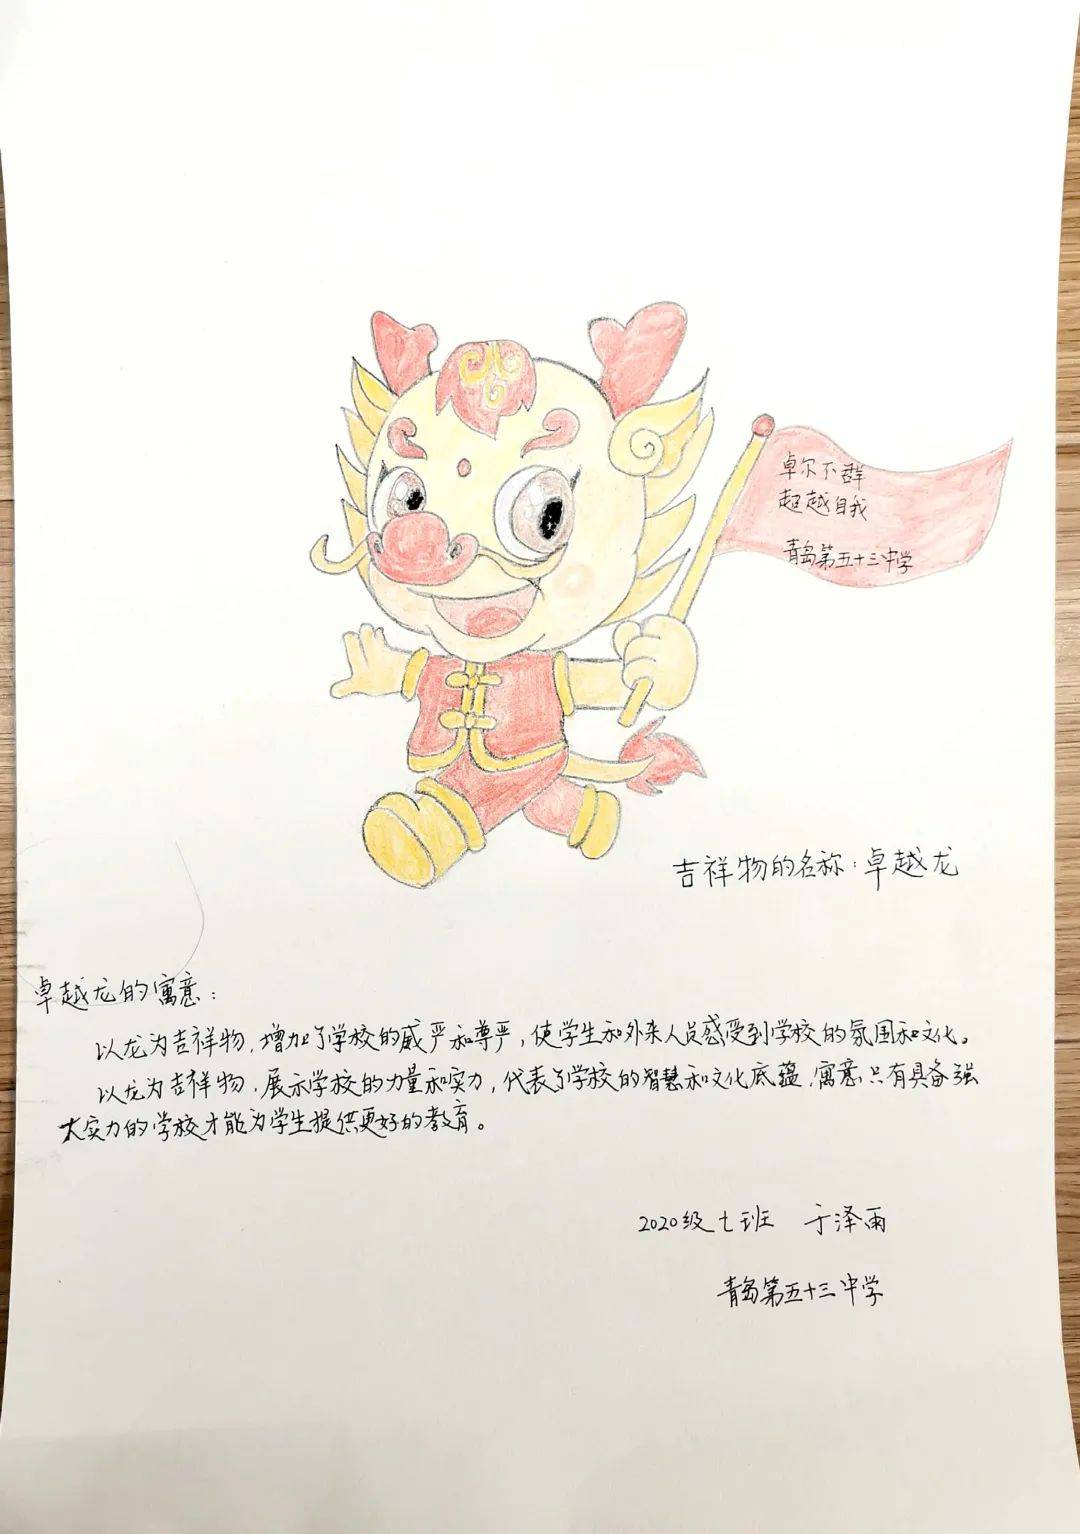 卓尔不群
超越自我
青岛第五十三中学
吉祥物的名称：卓越龙
卓越龙的寓意：
以龙为吉祥物，增加了学校的威严和尊严，使学生和外来人员感受到学校的氛围和文化。
以龙为吉祥物，展示学校的力量和实力，代表了学校的智慧和文化底蕴，寓意只有具备强
大实力的学校才能为学生提供更好的教育。
2020级七班 于泽雨
青岛第五十三中学